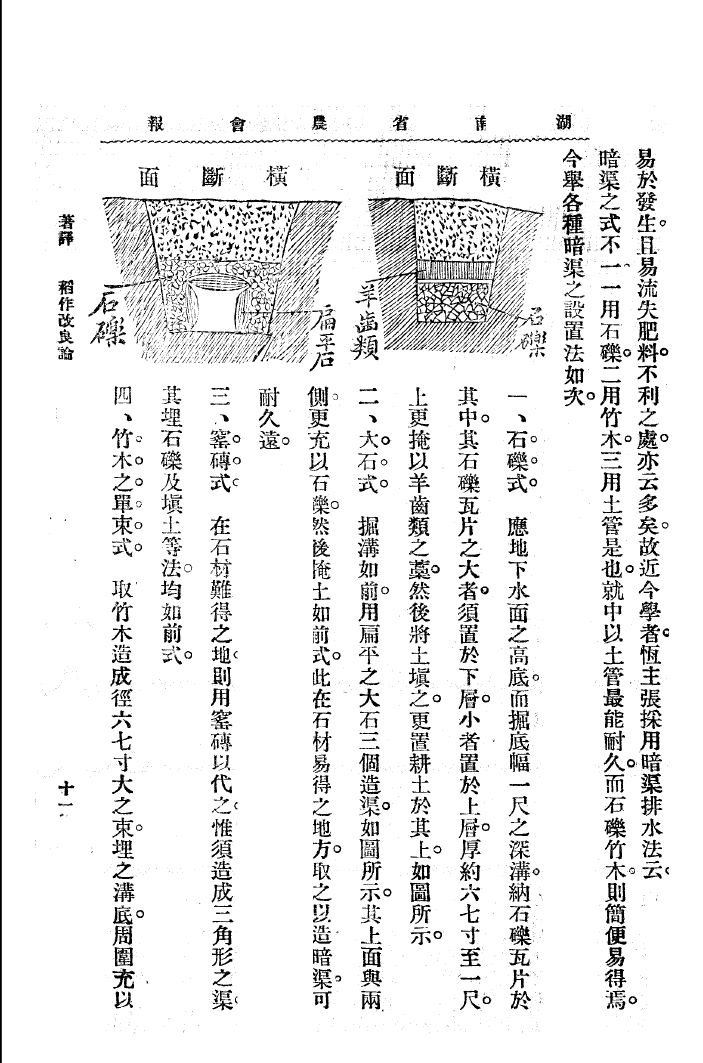 湖南省農會報
易於發生。且易流失肥料。不利之處。亦云多矣。故近今學者。恆主張採用暗渠排水法云。
暗渠之式不一。一用石礫。二用竹木。三用土管是也。就中以土管最能耐久。而石礫竹木。則簡便易得焉。
今舉各種暗渠之設置法如次。
橫斷面
石礫
羊齒類
橫斷面
扁平石
石礫
一、石礫式。　應地下水面之高底。而掘底幅一尺之深溝。納石礫瓦片於
其中。其石礫瓦片之大者。須置於下層。小者置於上層。厚約六七寸至一尺。
上更掩以羊齒類之藁。然後將土塡之。更置耕土於其上。如圖所示。
二、大石式。　掘溝如前。用扁平之大石三個造渠。如圖所示。其上面與兩
側更充以石礫。然後掩土如前式。此在石材易得之地方。取之以造暗渠。可
耐久遠。
三、窰磚式。　在石材難得之地。則用窰磚以代之。惟須造成三角形之渠。
其埋石礫及塡土等法。均如前式。
四、竹木之單束式。　取竹木造成徑六七寸大之束。埋之溝底。周圍充以
著譯　稻作改良論
十一